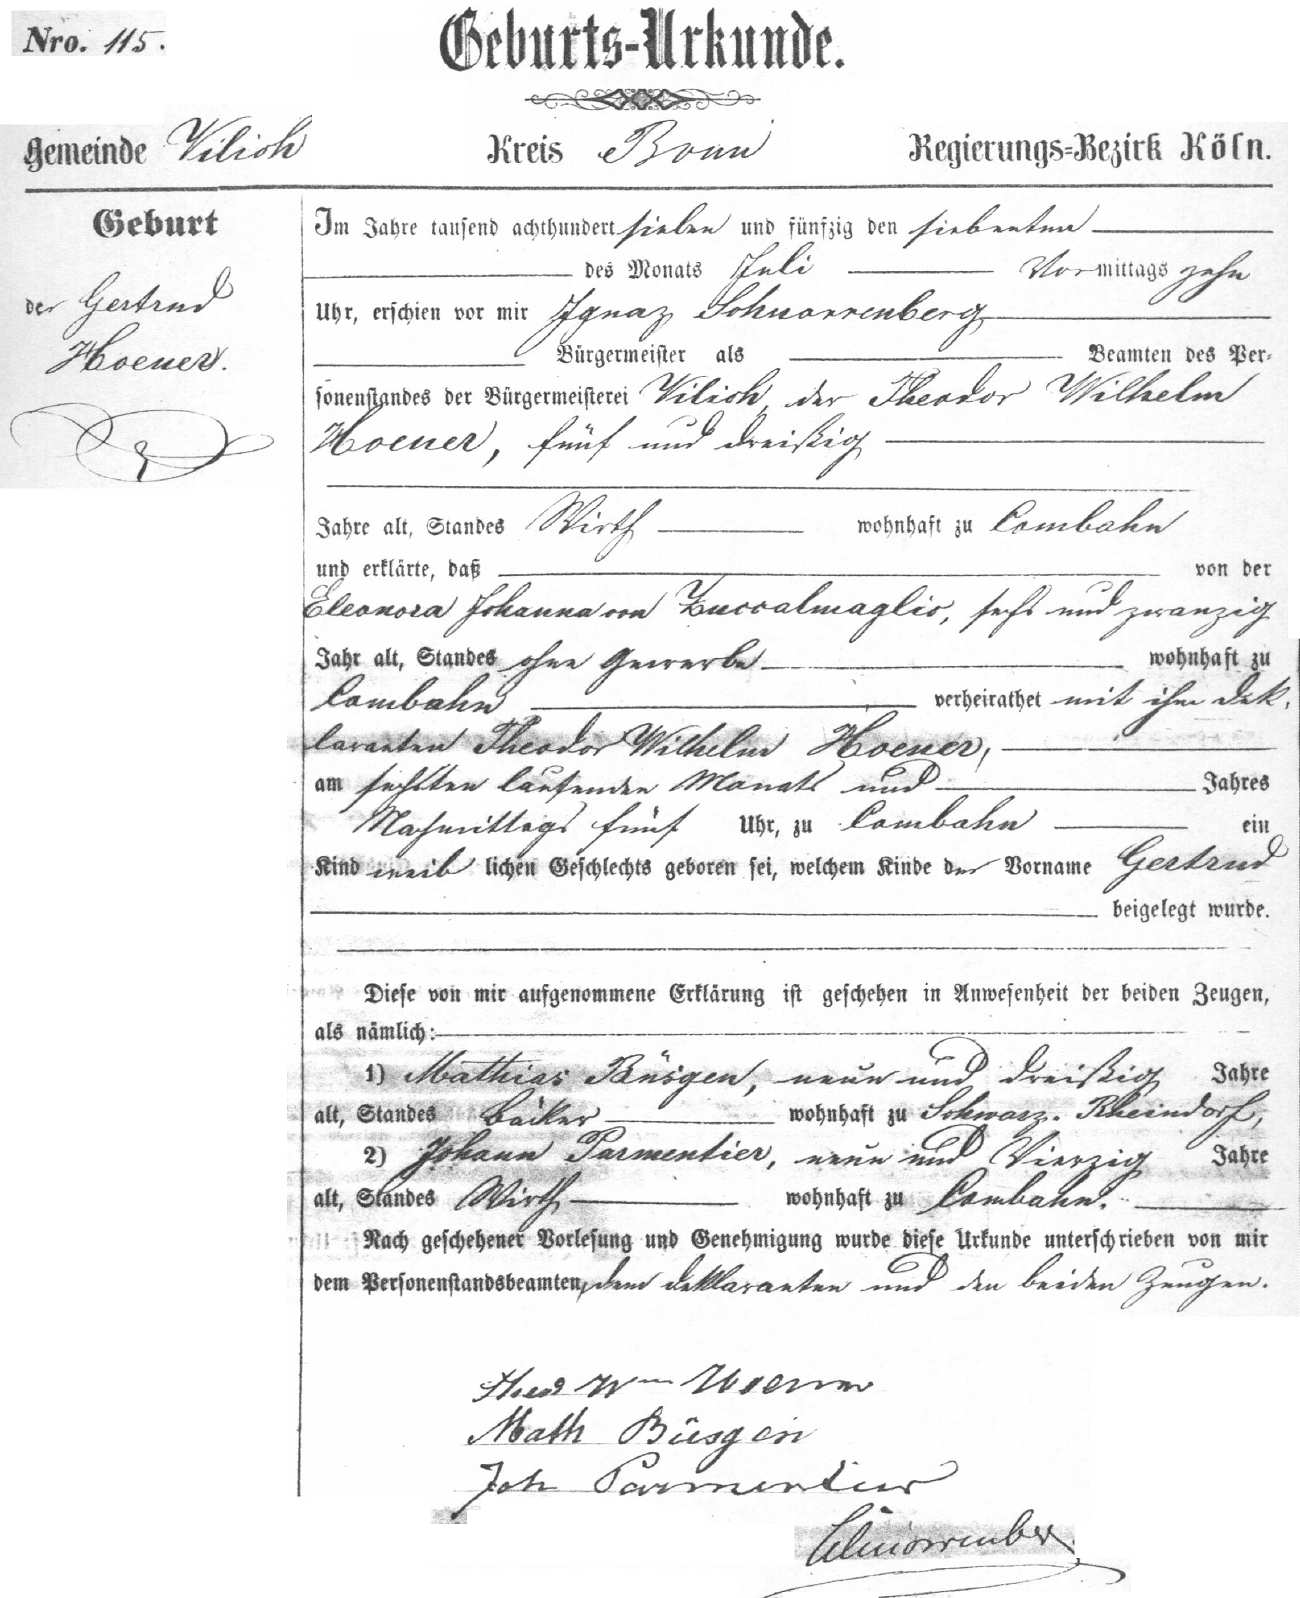 Nro. 115.
Geburts-Urkunde.
Gemeinde Vilich Kreis Bonn Regierungs-Bezirk Köln.
Geburt
der Gertrud
Hoener.
Im Jahre tausend achthundert sieben und fünfzig den siebenten
des Monats Juli Vormittags zehn
Uhr, erschien vor mir Ignaz Schnorrenberg
Bürgermeister als Beamten des Per-
sonenstandes der Bürgermeisterei Vilich, der Theodor Wilhelm
Hoener, fünf und dreißig
Jahre alt, Standes Wirth wohnhaft zu Combahn
und erklärte, daß von der
Eleonora Johanna von Zuccalmaglio, sechs und zwanzig
Jahr alt, Standes ohne Gewerbe wohnhaft zu
Combahn verheirathet mit ihm Dek,
laranten Theodor Wilhelm Hoener,
am sechsten laufenden Monats und Jahres
Nachmittags fünf Uhr, zu Combahn ein
Kind weib lichen Geschlechts geboren sei, welchem Kinde der Vorname Gertrud
beigelegt wurde.
Diese von mir aufgenommene Erklärung ist geschehen in Anwesenheit der beiden Zeugen,
als nämlich:
1) Mathias Büsgen, neun und dreißig Jahre
alt, Standes Bäcker wohnhaft zu Schwarz-Rheindorf,
2) Johann Parmentier, neun und Vierzig Jahre
alt, Standes Wirth wohnhaft zu Combahn.
Nach geschehener Vorlesung und Genehmigung wurde diese Urkunde unterschrieben von mir
dem Personenstandsbeamten, dem Deklaranten und den beiden Zeugen.
Theod Wm Hoener
Math Büsgen
Joh Parmentier
Schnorrenberg